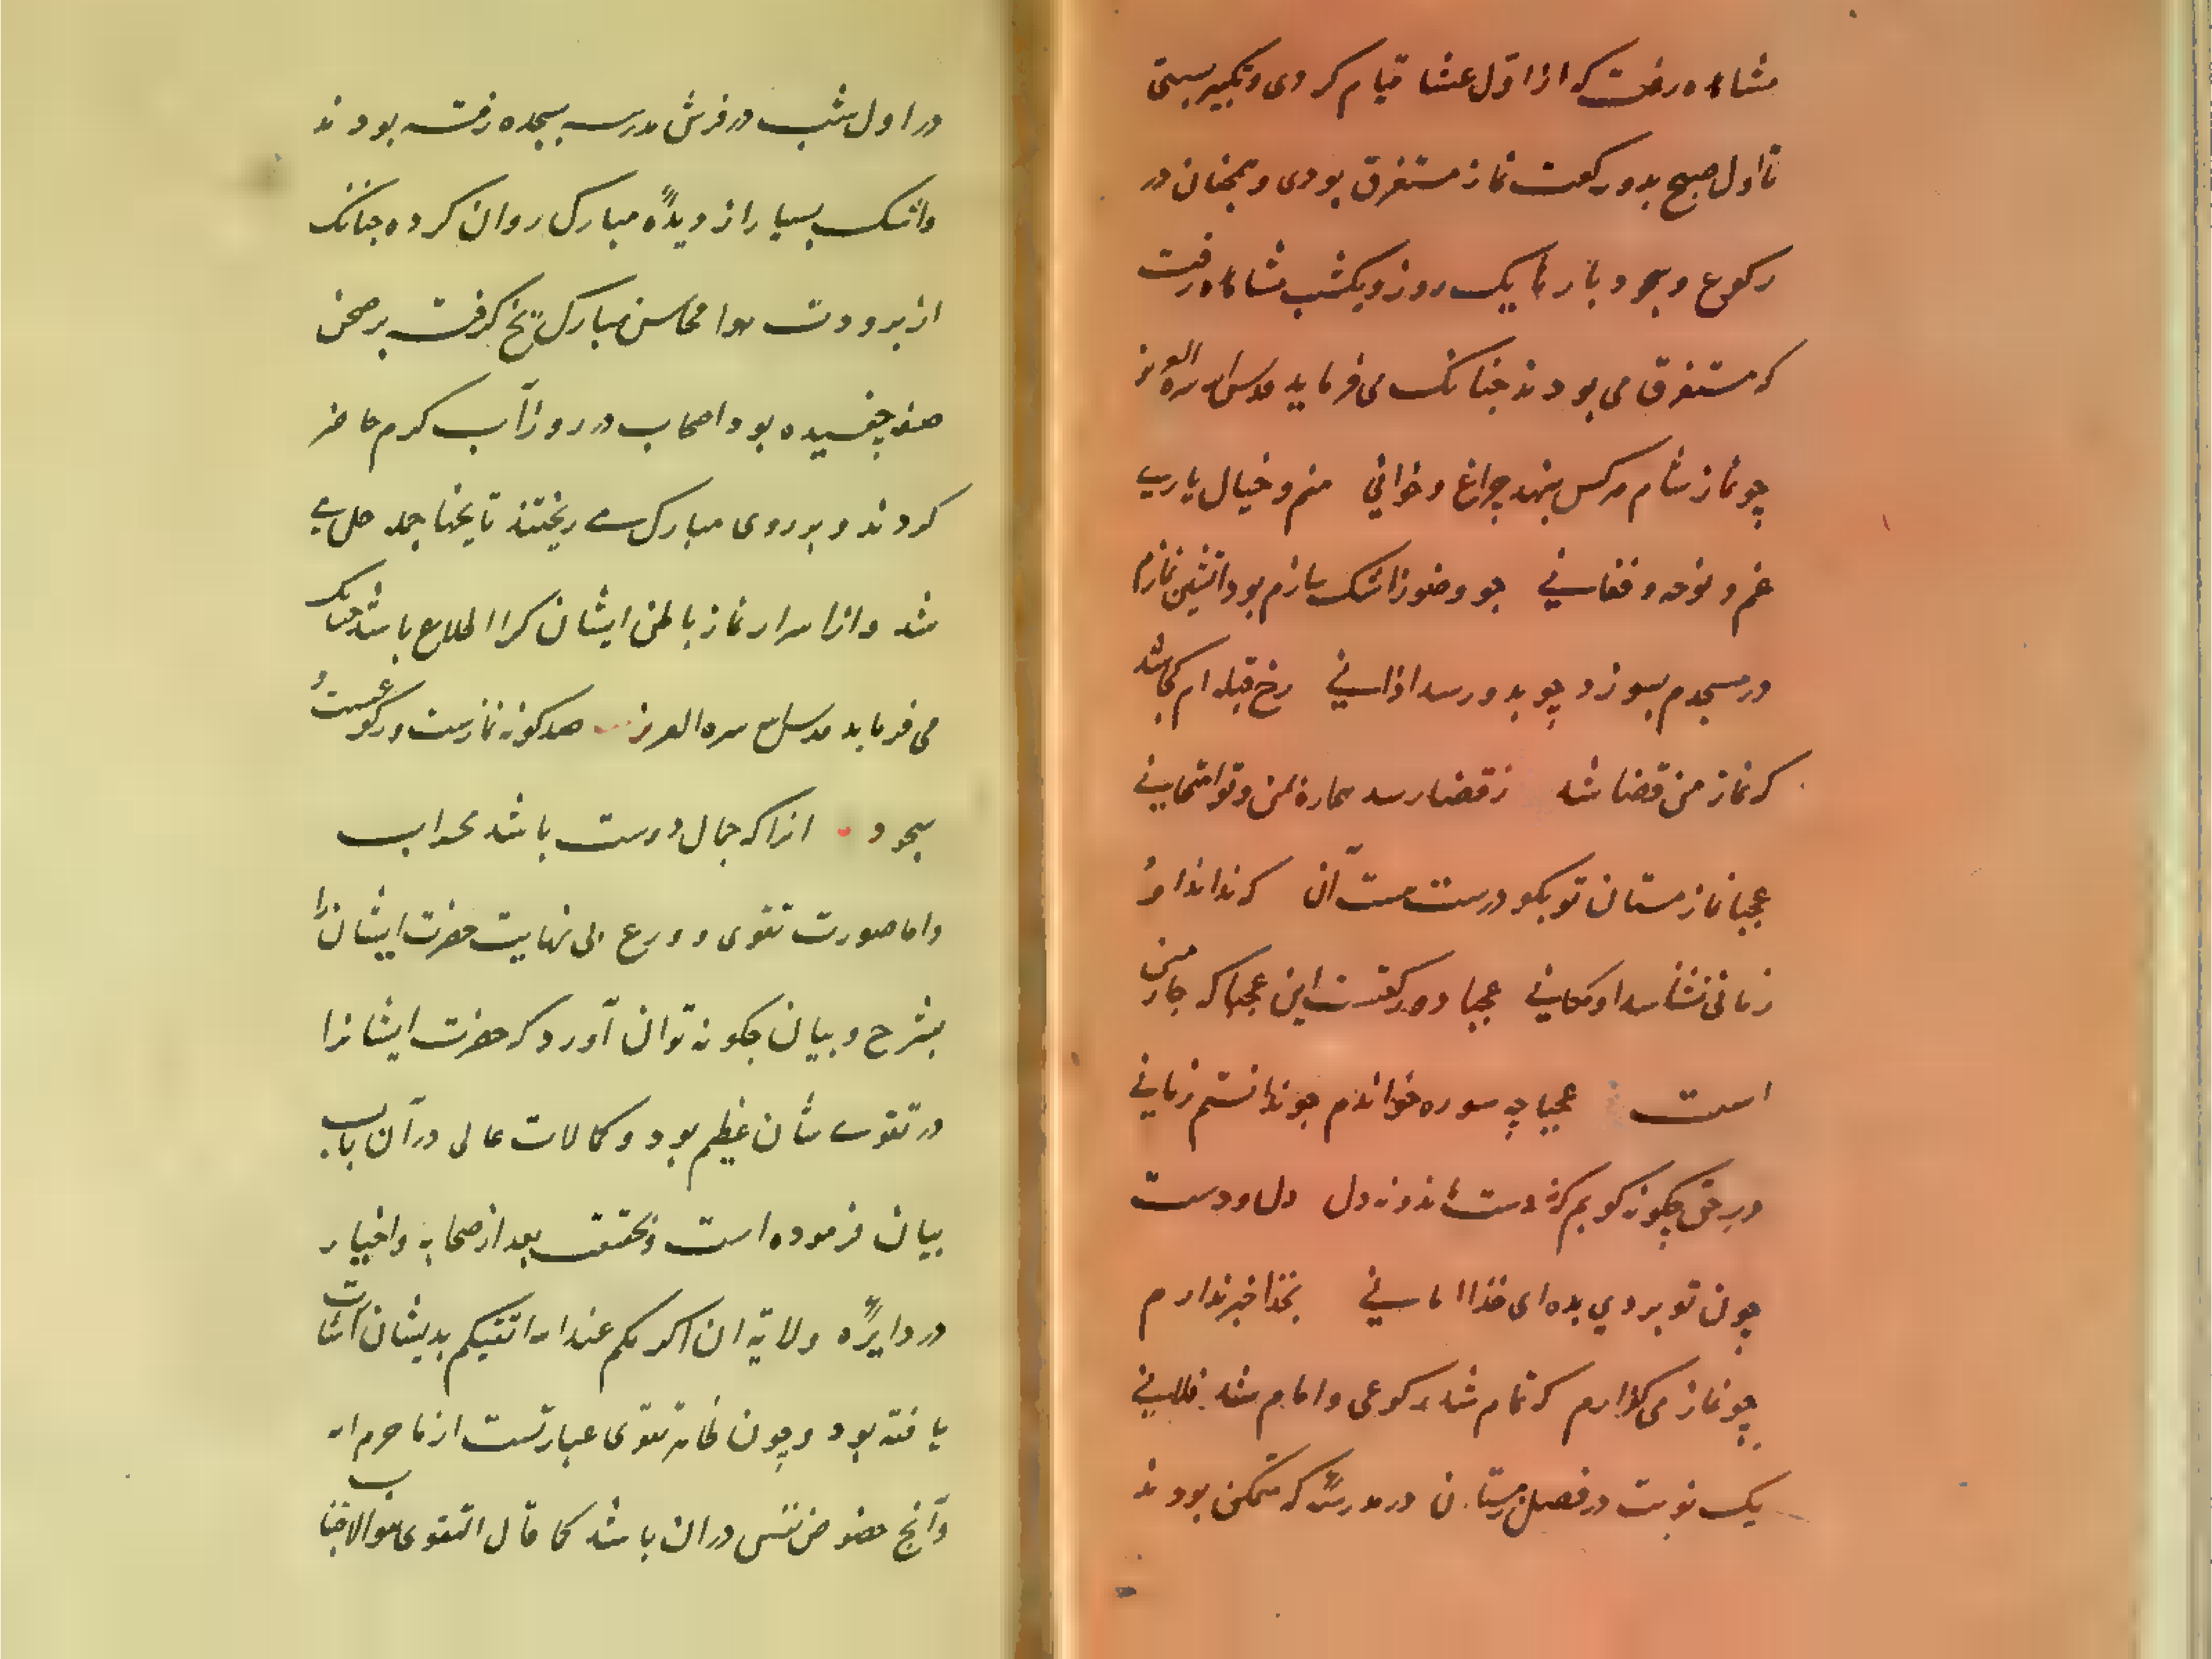 مشاهده رفت که از اول عشا قیام کردی و تکبیر بستی
تا اول صبح بدو رکعت نماز مستغرق بودی و همچنان در
رکوع و سجود بارها یک روز و یکشب مشاهده رفت
که مستغرق می بودند چنانک می فرماید قدس الله سره العزیز
چو نماز شام هرکس بنهد چراغ و خوانی منم و خیال یاری
غم و نوحه و فغانی چو وضو ز اشک سازم بود آتشین نمازم
در مسجدم بسوزد چو بدو رسد اذانی رخ قبله ام کجا شد
که نماز من قضا شد ز قضا رسد هماره بمن و تو امتحانی
عجبا نماز مستان تو بگو درست هست آن که نداند او
زمانی نشناسد او مکانی عجبا دو رکعتست این عجبا که چارمین
است عجبا چه سوره خواندم چو ندانستم زمانی
در حق چگونه کوبم که نه دست ماند و نه دل دل و دست
چون تو بردی بده ای خدا امانی بخدا خبر ندارم
چو نماز می گذارم که تمام شد رکوعی و امام شد فلانی
یک نوبت در فصل زمستان در مدرسهٔ که متمکن بودند
در اول شب در فرش مدرسه بسجده رفته بودند
و اشک بسیار از دیدهٔ مبارک روان کرده چنانک
از برودت هوا محاسن مبارک یخ گرفت بر صحن
صفه چفسیده بود اصحاب در روز آب گرم حاضر
کردند و بر روی مبارک می ریختند تا یخها جمله حل می
شد و از اسرار نماز باطن ایشان کرا اطلاع باشد چنانک
می فرماید قدس الله سره العزیز صد گونه نمازست و رکوعست و
سجود انرا که جمال دوست باشد محراب
و اما صورت تقوی و ورع بی نهایت حضرت ایشان را
بشرح و بیان چگونه توان آورد که حضرت ایشانرا
در تقوی شان عظیم بود و کمالات عالی در آن باب
بیان فرموده است و بحقیقت بعد از صحابه و اخیار
در دایرهٔ ولایة ان اکرمکم عند الله اتقیکم بدیشان اشارت
یافته بود و چون خانه تقوی عبارتست از ما حرم الله
و آنچ حضوض نفس در ان باشد کما قال التقوی هو الاجتناب